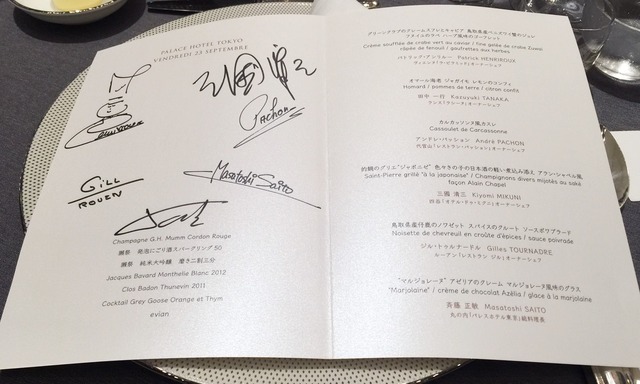 PALACE HOTEL TOKYO
VENDREDI 23 SEPTEMBRE
三國 清三
PACHON
Gill
ROUEN
Masatoshi SAITO
Champagne G.H. Mumm Cordon Rouge
獺祭 発泡にごり酒スパークリング50
獺祭 純米大吟醸 磨き二割三分
Jacques Bavard Monthelie Blanc 2012
Clos Badon Thunevin 2011
Cocktail Grey Goose Orange et Thym
evian
グリーンクラブのクレームスフレとキャビア 鳥取県産ベニズワイ蟹のジュレ
フヌイユのラペ ハーブ風味のゴーフレット
Crème soufflée de crabe vert au caviar / fine gelée de crabe Zuwai
râpée de fenouil / gaufrettes aux herbes
パトリック・アンリルー Patrick HENRIROUX
ヴィエンヌ「ラ・ピラミッド」オーナーシェフ
オマール海老 ジャガイモ レモンのコンフィ
Homard / pommes de terre / citron confit
田中 一行 Kazuyuki TANAKA
ランス「ラシーヌ」オーナーシェフ
カルカッソンヌ風カスレ
Cassoulet de Carcassonne
アンドレ・パッション André PACHON
代官山「レストラン・パッション」オーナーシェフ
的鯛のグリエ"ジャポニゼ" 色々きのこの日本酒の軽い煮込み添え アラン・シャペル風
Saint-Pierre grillé "à la japonaise" / Champignons divers mijotés au saké
façon Alain Chapel
三國 清三 Kiyomi MIKUNI
四谷「オテル・ドゥ・ミクニ」オーナーシェフ
鳥取県産仔鹿のノワゼット スパイスのクルート ソースポワヴラード
Noisette de chevreuil en croûte d'épices / sauce poivrade
ジル・トゥルナードル Gilles TOURNADRE
ルーアン「レストラン ジル」オーナーシェフ
"マルジョレーヌ" アゼリアのクレーム マルジョレーヌ風味のグラス
"Marjolaine" / crème de chocolat Azélia / glace à la marjolaine
斉藤 正敏 Masatoshi SAITO
丸の内「パレスホテル東京」総料理長